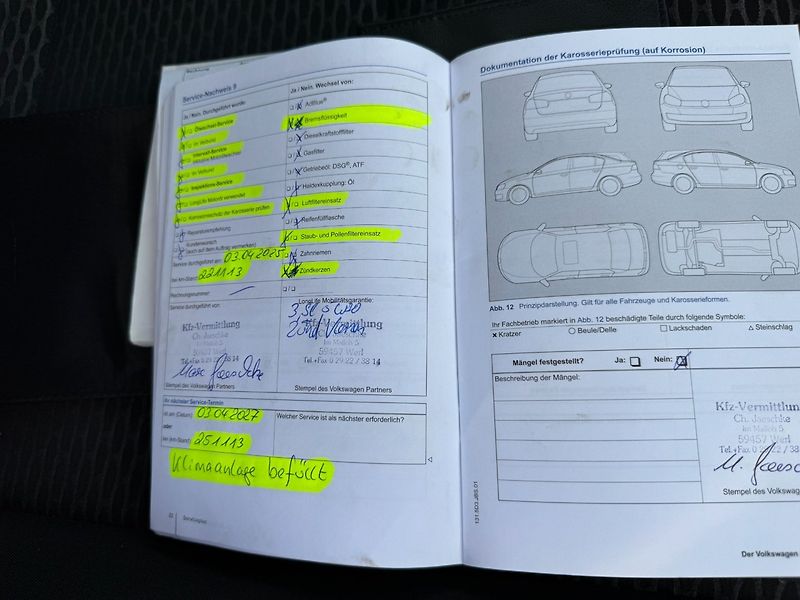 Service-Nachweis 9
Ja / Nein. Durchgeführt wurde:
Ölwechsel-Service
im Verbund
Intervall-Service
inklusive Motorölwechsel
im Verbund
Inspektions-Service
LongLife Motoröl verwendet
Korrosionsschutz der Karosserie prüfen
Reparaturempfehlung
Kundenwunsch
(auch auf dem Auftrag vermerken)
Service durchgeführt am: 03.04.2025
bei km-Stand: 221113
Rechnungsnummer:
Service durchgeführt von:
Kfz-Vermittlung
Ch. Jaeschke
Im Maifeld 5
59457 Werl
Stempel des Volkswagen Partners
Ja / Nein. Wechsel von:
AdBlue®
Bremsflüssigkeit
Dieselkraftstofffilter
Gasfilter
Getriebeöl: DSG®, ATF
Haldexkupplung: Öl
Luftfiltereinsatz
Reifenfüllflasche
Staub- und Pollenfiltereinsatz
Zahnriemen
Zündkerzen
Ja / Nein
LongLife Mobilitätsgarantie:
Kfz-Vermittlung
59457 Werl
Tel.+Fax 0 29 22 / 38 14
Stempel des Volkswagen Partners
Ihr nächster Service-Termin
ist am (Datum): 03.04.2027
oder
bei (km-Stand): 251113
Welcher Service ist als nächster erforderlich?
Klimaanlage befüllt
Dokumentation der Karosserieprüfung (auf Korrosion)
Abb. 12 Prinzipdarstellung. Gilt für alle Fahrzeuge und Karosserieformen.
Ihr Fachbetrieb markiert in Abb. 12 beschädigte Teile durch folgende Symbole:
Kratzer
Beule/Delle
Lackschaden
Steinschlag
Mängel festgestellt? Ja: Nein:
Beschreibung der Mängel:
Kfz-Vermittlun
Ch. Jaeschke
59457 Werl
Tel.+Fax 0 29 22 / 38
Stempel des Volkswagen
131.5D3.JBS.01
Der Volkswagen